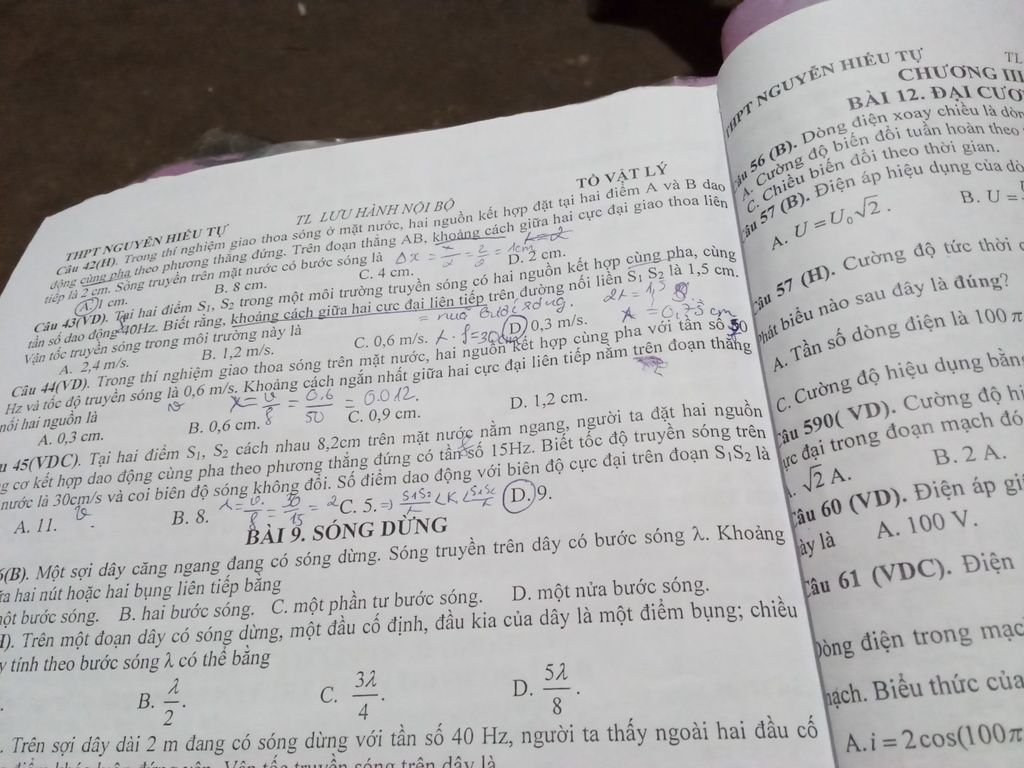 THPT NGUYỄN HIẾU TỰ TL LƯU HÀNH NỘI BỘ TỔ VẬT LÝ
Câu 42(H). Trong thí nghiệm giao thoa sóng ở mặt nước, hai nguồn kết hợp đặt tại hai điểm A và B dao
động cùng pha theo phương thẳng đứng. Trên đoạn thẳng AB, khoảng cách giữa hai cực đại giao thoa liên
tiếp là 2 cm. Sóng truyền trên mặt nước có bước sóng là Δx = = 2/2 = 1cm
A. 1 cm. B. 8 cm. C. 4 cm. D. 2 cm.
Câu 43(VD). Tại hai điểm S₁, S₂ trong một môi trường truyền sóng có hai nguồn kết hợp cùng pha, cùng
tần số dao động 40Hz. Biết rằng, khoảng cách giữa hai cực đại liên tiếp trên đường nối liền S₁ S₂ là 1,5 cm.
Vận tốc truyền sóng trong môi trường này là = nuő bước sóng.
A. 2,4 m/s. B. 1,2 m/s. C. 0,6 m/s. D. 0,3 m/s.
Câu 44(VD). Trong thí nghiệm giao thoa sóng trên mặt nước, hai nguồn kết hợp cùng pha với tần số 50
Hz và tốc độ truyền sóng là 0,6 m/s. Khoảng cách ngắn nhất giữa hai cực đại liên tiếp nằm trên đoạn thẳng
nối hai nguồn là v λ = v/f = 0.6/50 = 0.012.
A. 0,3 cm. B. 0,6 cm. C. 0,9 cm. D. 1,2 cm.
u 45(VDC). Tại hai điểm S₁, S₂ cách nhau 8,2cm trên mặt nước nằm ngang, người ta đặt hai nguồn
g cơ kết hợp dao động cùng pha theo phương thẳng đứng có tần số 15Hz. Biết tốc độ truyền sóng trên
nước là 30cm/s và coi biên độ sóng không đổi. Số điểm dao động với biên độ cực đại trên đoạn S₁S₂ là
A. 11. B. 8. C. 5. D. 9.
BÀI 9. SÓNG DỪNG
6(B). Một sợi dây căng ngang đang có sóng dừng. Sóng truyền trên dây có bước sóng λ. Khoảng
ữa hai nút hoặc hai bụng liên tiếp bằng
một bước sóng. B. hai bước sóng. C. một phần tư bước sóng. D. một nửa bước sóng.
H). Trên một đoạn dây có sóng dừng, một đầu cố định, đầu kia của dây là một điểm bụng; chiều
y tính theo bước sóng λ có thể bằng
B. λ/2. C. 3λ/4. D. 5λ/8.
. Trên sợi dây dài 2 m đang có sóng dừng với tần số 40 Hz, người ta thấy ngoài hai đầu cố
THPT NGUYỄN HIẾU TỰ TL
CHƯƠNG III
BÀI 12. ĐẠI CƯƠ
âu 56 (B). Dòng điện xoay chiều là dòn
A. Cường độ biến đổi tuần hoàn theo
C. Chiều biến đổi theo thời gian.
âu 57 (B). Điện áp hiệu dụng của dò
A. U = U₀√2. B. U =
âu 57 (H). Cường độ tức thời
phát biểu nào sau đây là đúng?
A. Tần số dòng điện là 100 π
C. Cường độ hiệu dụng bằng
âu 590( VD). Cường độ hi
ực đại trong đoạn mạch đó
. √2 A. B. 2 A.
Câu 60 (VD). Điện áp gi
ày là A. 100 V.
Câu 61 (VDC). Điện
Dòng điện trong mạc
nạch. Biểu thức của
A. i = 2cos(100π